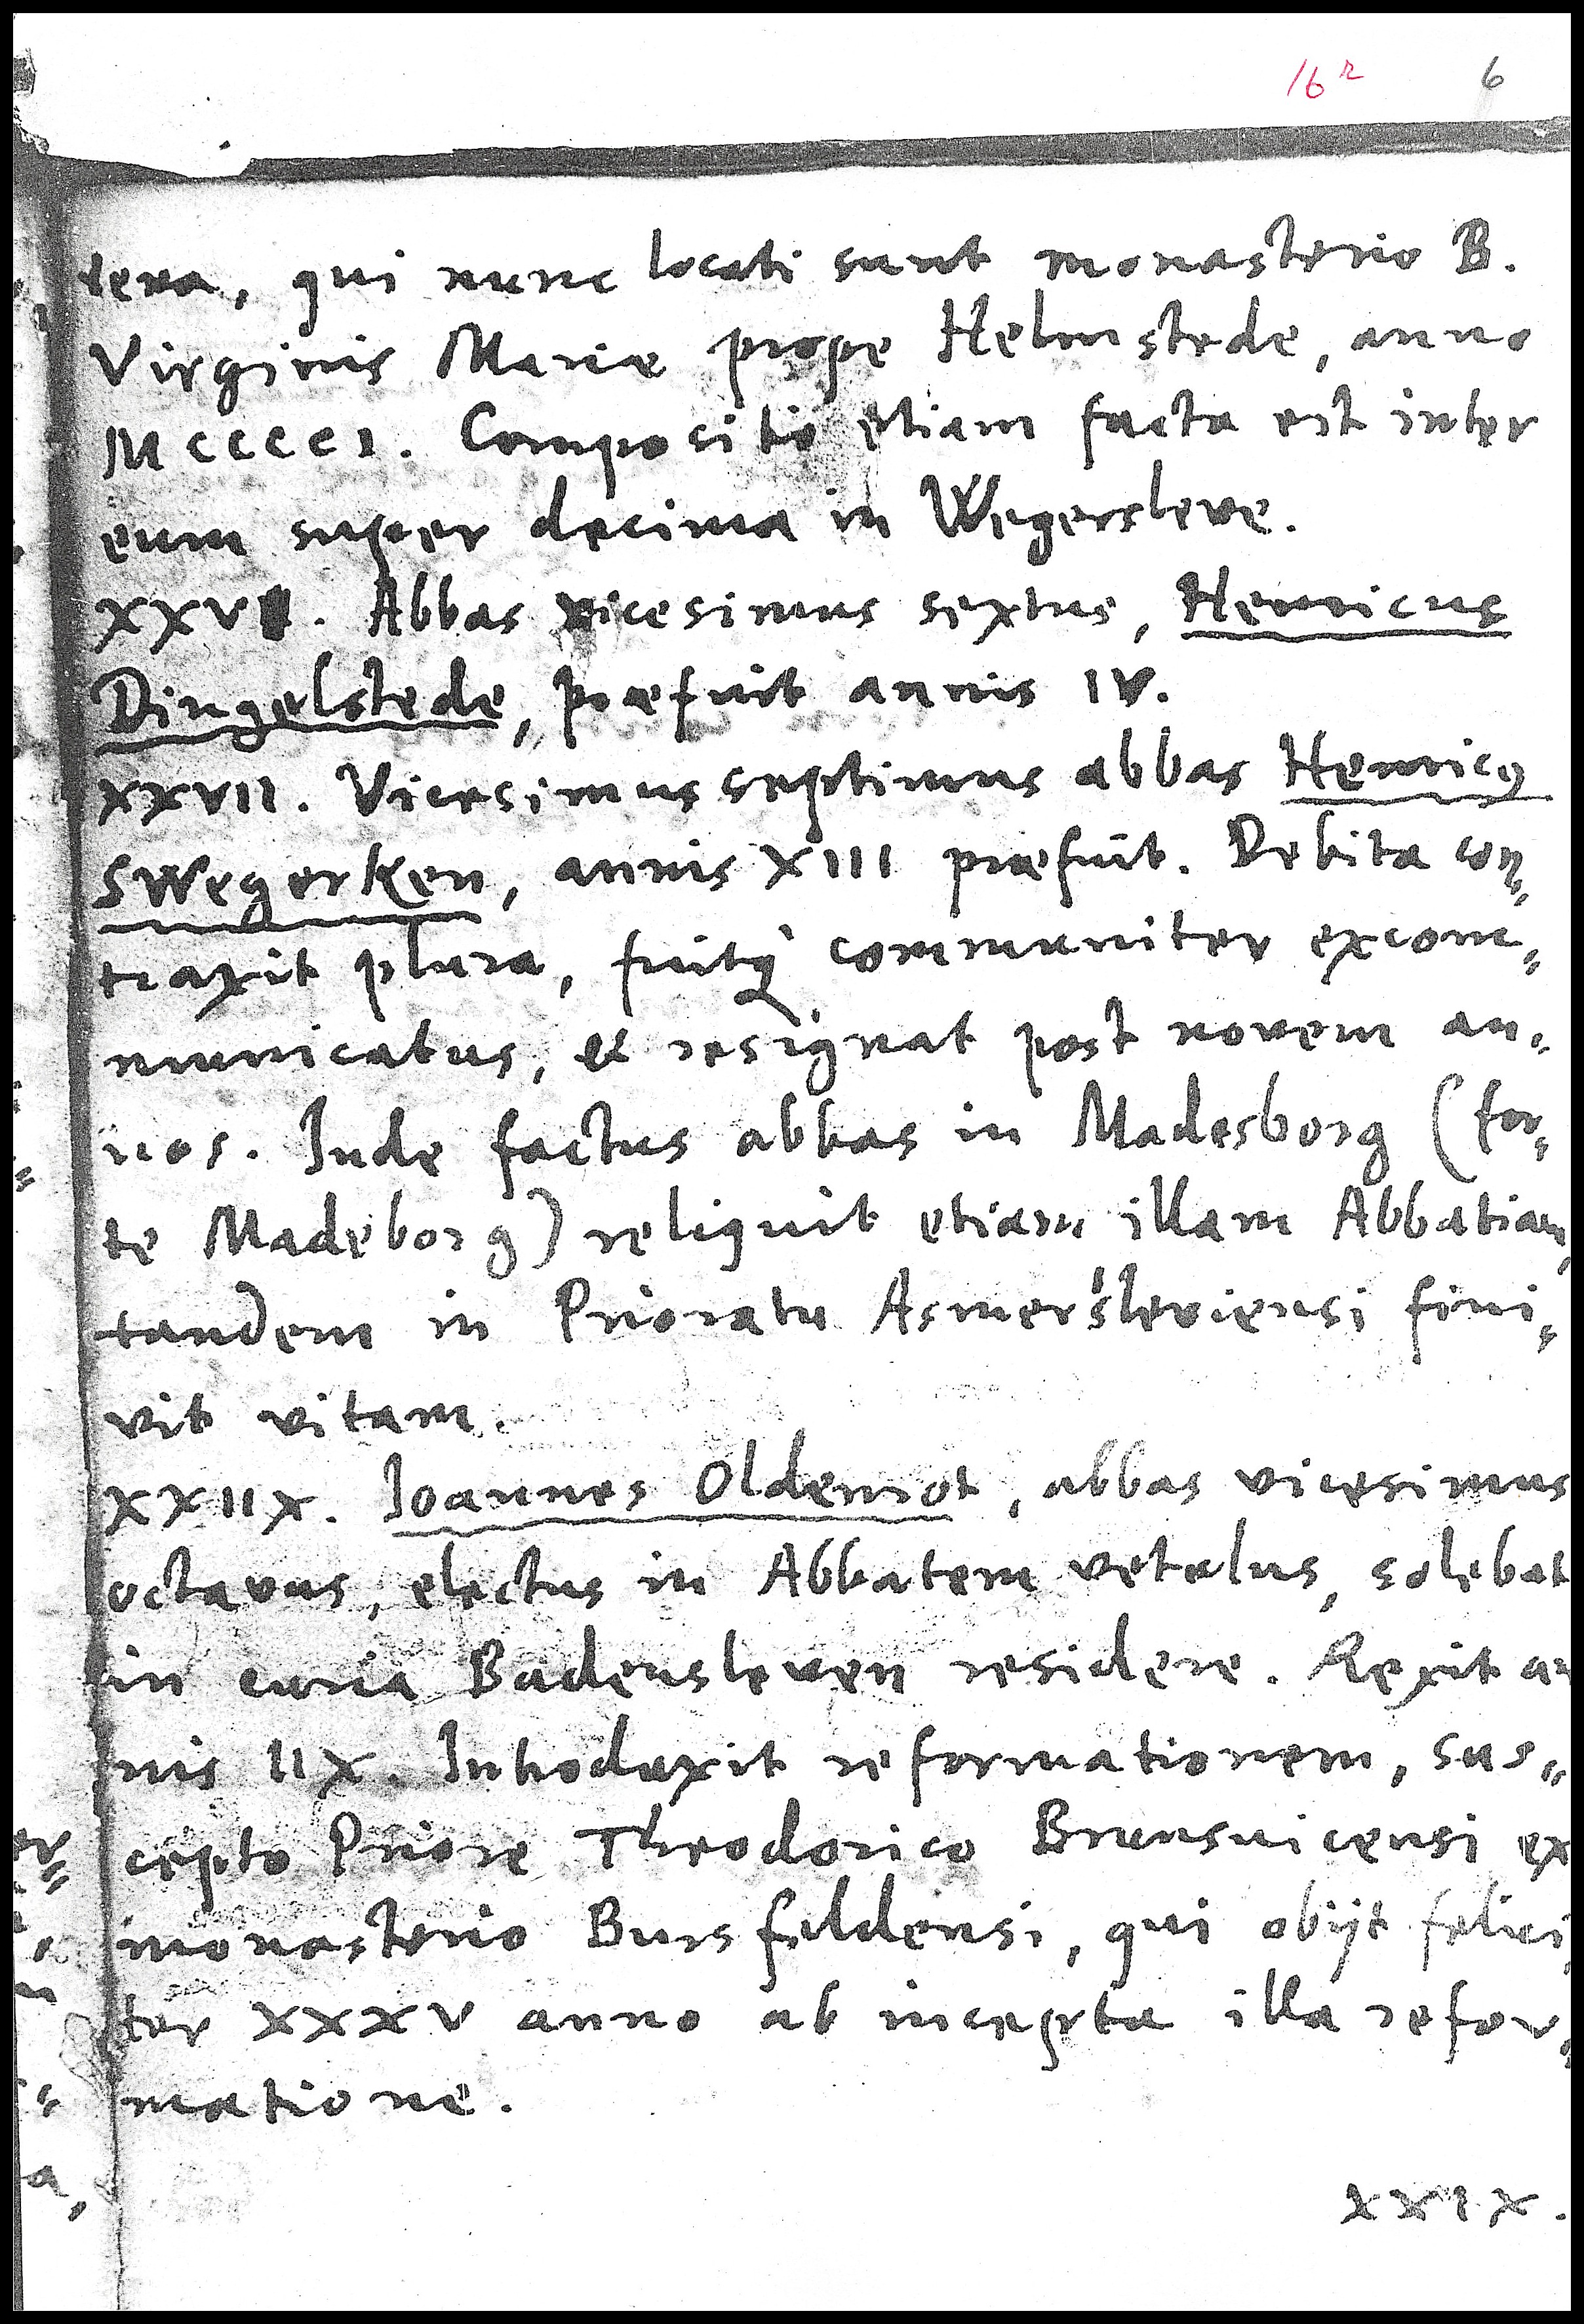 16r 6
tera, qui nunc locati sunt monasterio B.
Virginis Mariæ prope Helmstede, anno
MCCCCI. Compositio etiam facta est inter
eum super decima in Wegersleve.
XXVI. Abbas vicesimus sextus, Henricus
Dingelstede, præfuit annis IV.
XXVII. Vicesimus septimus abbas Henricꝯ
SWegerken, annis XIII præfuit. Debita con⸗
traxit plura, fuitq́ communiter excom⸗
municatus, et resignat post novem an⸗
nos. Inde factus abbas in Madesborg (for⸗
te Madeborg) reliquit etiam illam Abbatiam,
tandem in Prioratu Asmersleviensi fini⸗
vit vitam.
XXIIX. Ioannes Oldemot, abbas vicesimus
octavus, electus in Abbatem vetulus, solebat
in curia Badensleven residere. Rexit an
nis IIX. Introduxit reformationem, sus⸗
cepto Priore Theodorico Brunsuicensi ex
monasterio Bursfeldensi, qui obijt felici⸗
ter XXXV anno ab incepta illa refor⸗
matione.
XXIX.